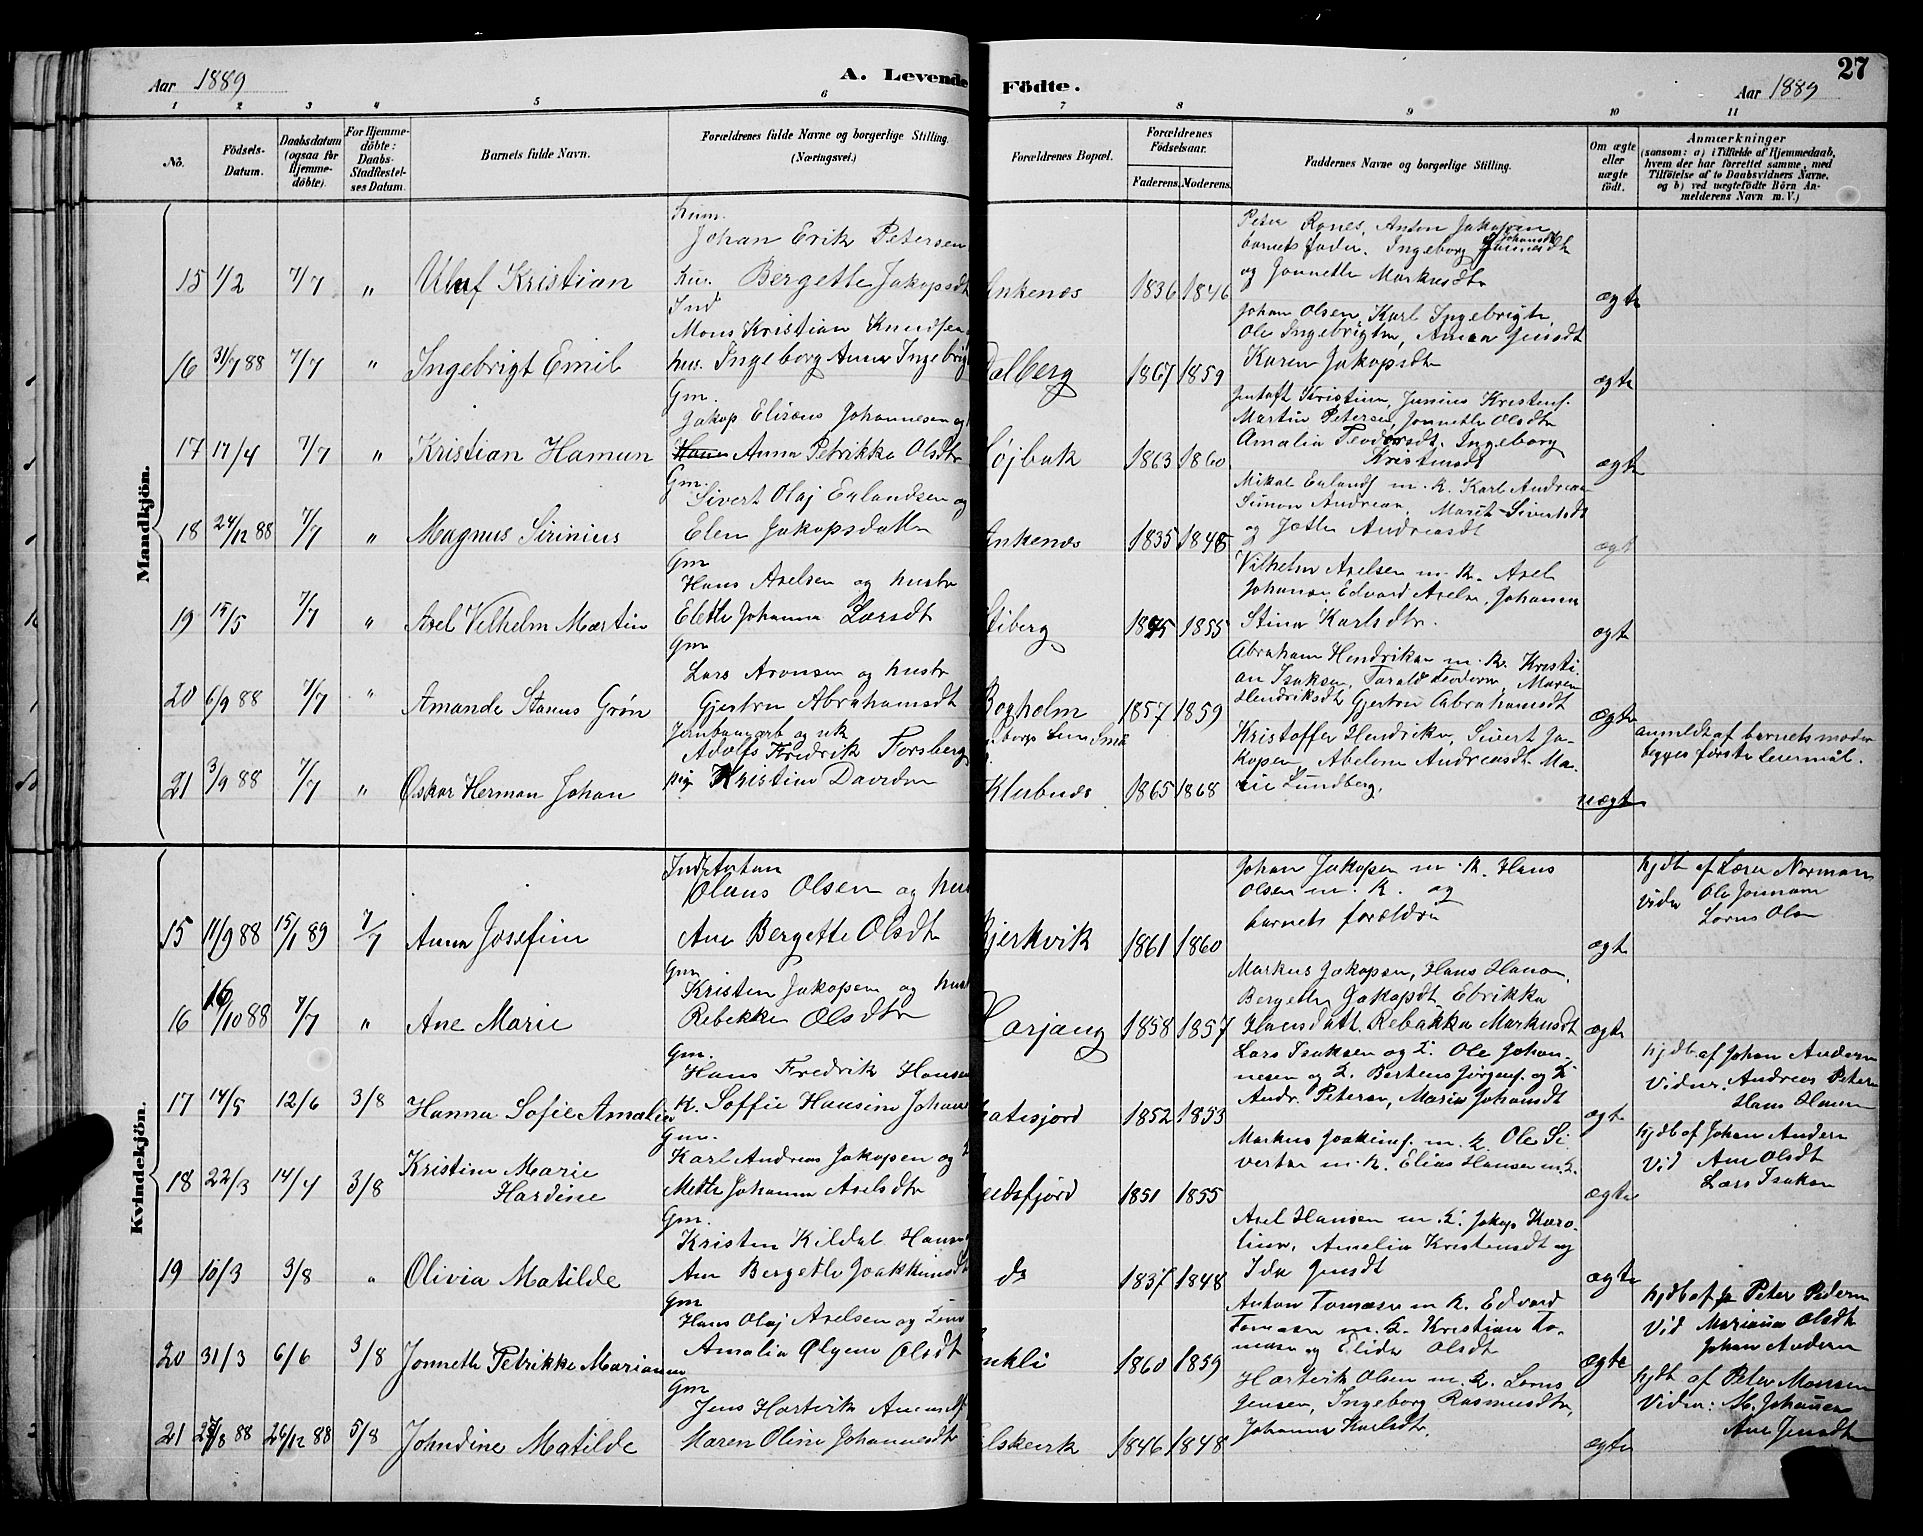 Aar 1889
A. Levende Födte.
Aar 1889
27
1 2 3 4 5 6 7 8 9 10 11
No.
Födsels-Datum.
Daabsdatum (ogsaa for Hjemme-döbte).
For Hjemme-döbte: Daabs-Stadfæstel-ses Datum.
Barnets fulde Navn.
Forældrenes fulde Navne og borgerlige Stilling. (Næringsvei.)
Forældrenes Bopæl.
Forældrenes Födselsaar.
Faderens. Moderens.
Faddernes Navne og borgerlige Stilling.
Om ægte eller uægte födt.
Anmærkninger
(saasom: a) i Tilfælde af Hjemmedaab,
hvem der har forrettet samme, med
Tilföielse af to Daabsvidners Navne,
og b) ved uægtefödte Börn An-
melderens Navn m. V.)
Mandkjön.
15 1/2 7/7 " Uluf Kristian
Johan Erik Petersen
Bergette Jakopsdt
Ankenes 1836 1846
Peter Rones, Anton Jakopsen
barnets fader, Ingeborg Johansdt
og Jonnette Markusdtr
ægte
16 31/7 88 7/7 " Ingebrigt Emil
Ind
Mons Kristian Knudsen
hus. Ingeborg Anna Ingebrigt
Dalberg 1867 1859
Johan Olsen, Karl Ingebrigts
Ole Ingebrigtsn, Anna Jensdt
Karen Jakopsdtr
ægte
17 17/4 7/7 " Kristian Hamun
Gm.
Jakop Elizæus Johannesen og
Anna Petrikka Olsdtr
1863 1860
Martin Petersen, Jonnette Olsdtr
Amalia Teodorsdt. Ingeborg
Kristensdt
ægte
18 24/12 88 7/7 " Magnus Sirinius
Gm.
Sivert Olaj Erlandsen og
Elen Jakopsdatter
Ankenes 1835 1848
Mikal Erlands m. K. Karl Andreas
Simon Andreas, Marit Sivertsdt
og Jette Andreasdt
ægt
19 15/5 7/7 " Axel Vilhelm Martin
Gm
Hans Axelsen og hustr
Elette Johanna Larsdt
Stiberg 1855
Vilhelm Axelsen m. K. Axel
Johanse, Edvard Axelsn, Johanna
Stina Karlsdtr.
ægte
20 6/9 88 7/7 " Amande Stanus Grøn
Gm
Lars Aronsen og hustr
Gjertru Abrahamsdt
Bogholm 1857 1859
Abraham Hendriksn m. K. Kristi-
an Isaksen, Tarald Teodorsn, Maren
Hendriksdt, Gjertru Abrahamsdt
ægte
21 3/9 88 7/7 " Oskar Herman Johan
Jernbanearb og
Adolf Fredrik Forsberg
pig Kristine Davidsn
Klubnes 1865 1868
Kristoffer Hendriksn, Sivert Ja-
kopsen, Abelone Andreasdt Ma-
rie Lundberg.
uægte
anmeldt af barnets moder
begges første leiermål.
Kvindekjön.
15 11/9 88 15/1 89 7/7 Anna Josefine
Olaus Olsen og hust
Ane Bergette Olsdtr
Bjerkvik 1861 1860
Johan Jakopsen m. K. Hans
Olsen m. K. og
barnets forældre
ægte
hjdb af Lærer Norman
vidner Ole Jonnasn
Lorns Olsn
16 16/10 88 7/7 " Ane Marie
Gm
Kristen Jakopsen og hust
Rebekka Olsdtr
Harjang 1858 1857
Markus Jakopsen, Hans Hansn,
Bergette Jakopsdt, Ebrikka
Hansdatt. Rebakka Markusdt
ægte
17 14/5 12/6 3/8 Hanna Sofie Amalie
Gm.
Hans Fredrik Hansen
K. Soffie Hansine Johan
1852 1853
Lars Isaksen og K. Ole Johan-
nesen og K. Bertens Jørgens. og K
Andr. Petersn, Maria Johansdt
ægte
hjdb af Johan Andersn
Vidner. Andreas Petersn
Hans Hansen
18 22/3 14/4 3/8 Kristine Marie
Hardine
Gm.
Karl Andreas Jakopsen og
Mette Johanna Axelsdtr
1851 1855
Markus Joakims. m. K. Ole Si-
vertsn m. K. Elias Hansen m. K.
ægte
hjdb af Johan Andersn
Vid Ane Olsdt
Lars Isaksn
19 10/3 3/8 " Olivia Matilde
Gm.
Kristen Kildal Hansen
Ane Bergette Joakkimsdt
do 1837 1848
Axel Hansen m. K. Jakop Karo-
liusn, Amalia Kristensdt og
Ida Jensdt
ægte
20 31/3 6/6 3/8 Jonnette Petrikke Marianne
Gm
Hans Olaj Axelsen og
Amalia Olyana Olsdt
1860 1859
Anton Tomasn m K. Edvard
Tomasn m. K. Kristian To-
masn og Elida Olsdt
ægte
hjdb af Peter Pedersn
Vid Mariana Olsdt
Johan Andersn
21 88 26/12 88 5/8 Johndine Matilde
Gm
Jens Hartvik
Maren Oline Johannesdt
Elskevik 1846 1848
Hartvik Olsen m. K. Lorns
Jensen, Ingeborg Rasmusdtr,
Johanna Karlsdtr.
ægte
hjdt af Peter Monsen
Vidner: M. Johansn
Ane Jensdt